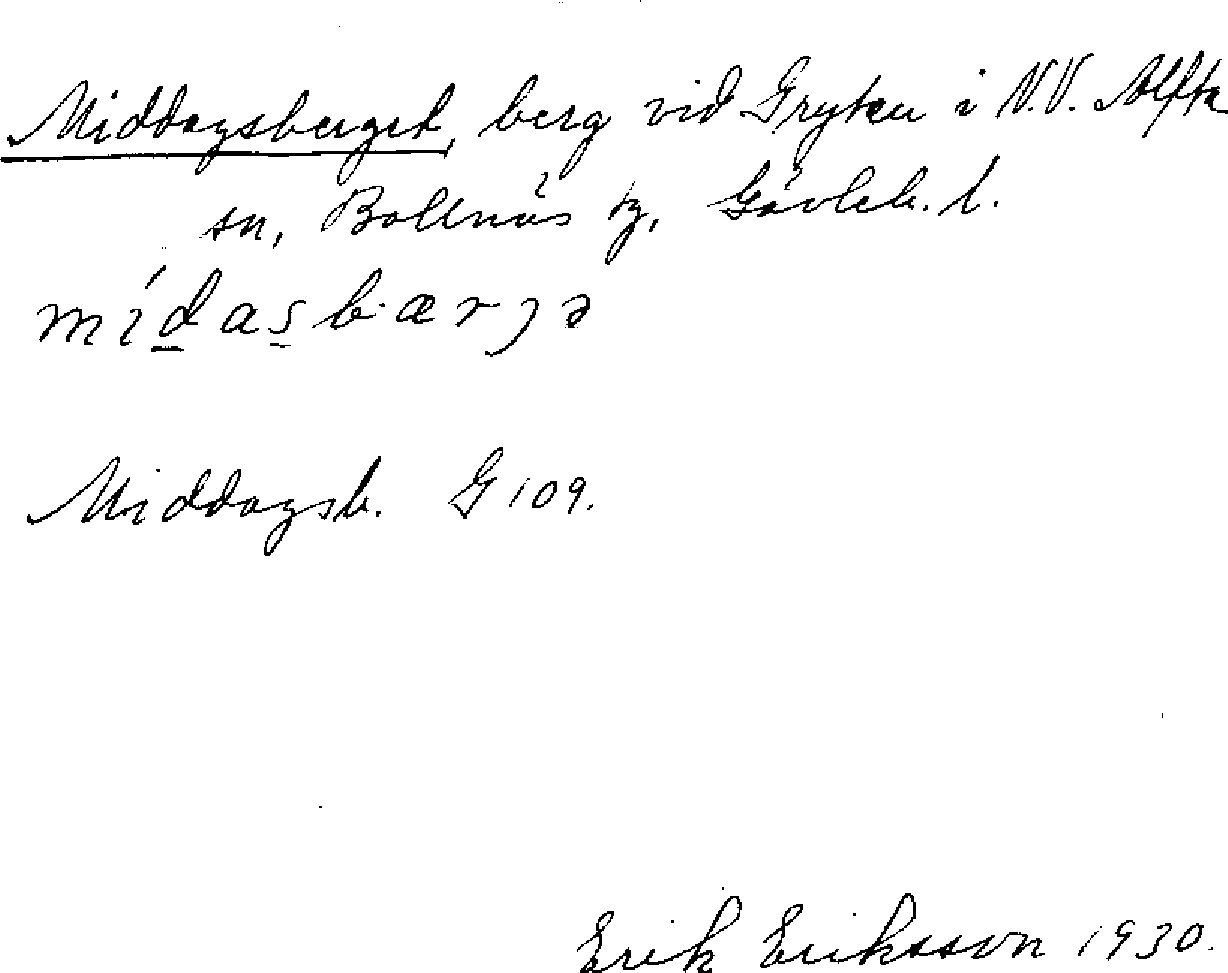 Middagsberget, berg vid Gryken i V.V. Alfta
sn, Bollnäs tg, Gävleb. l.
mídasb·ærjə
Middagsb. G 109.
Erik Eriksson 1930.